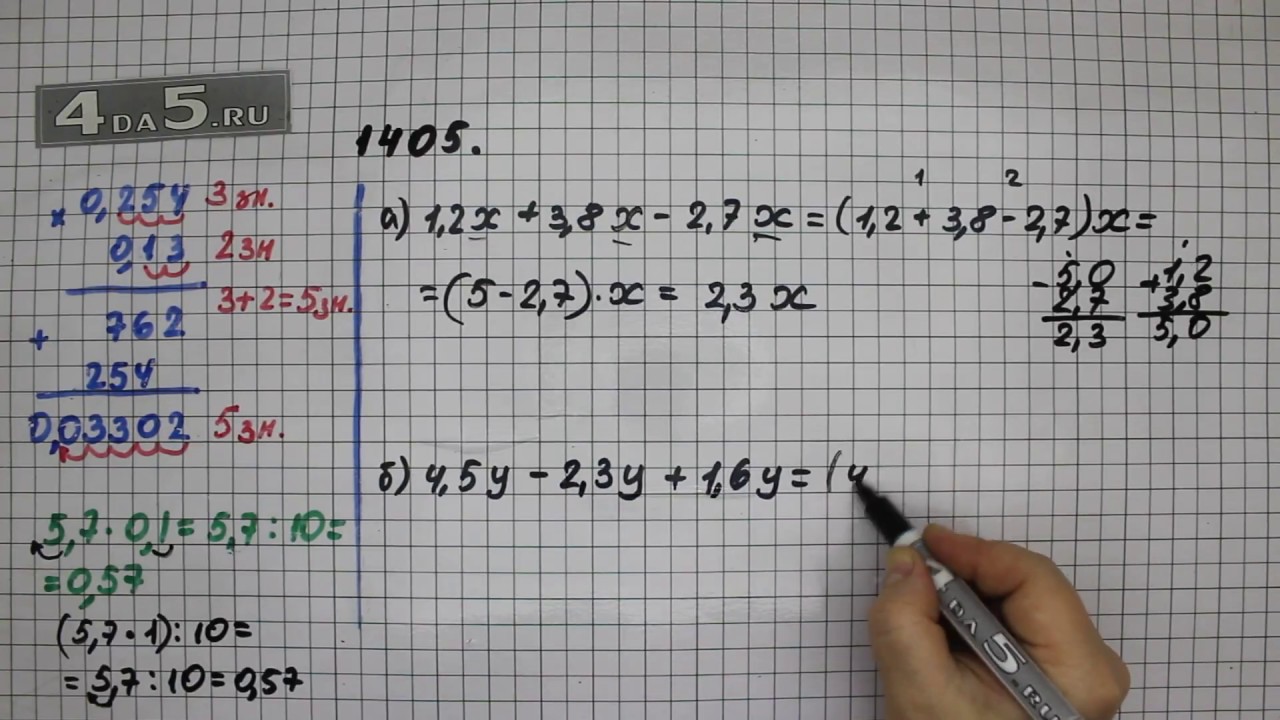 4DA5.RU
1405.
× 0,254 3 зн.
0,13 2 зн
3+2=5 зн.
+ 762
254
0,03302 5 зн.
5,7 · 0,1 = 5,7 : 10 =
= 0,57
(5,7 · 1) : 10 =
= 5,7 : 10 = 0,57
1 2
а) 1,2x + 3,8x - 2,7x = (1,2 + 3,8 - 2,7)x =
= (5 - 2,7) · x = 2,3x
- 5,0
2,7
2,3
+ 1,2
3,8
5,0
б) 4,5y - 2,3y + 1,6y = (4
4DA5.RU